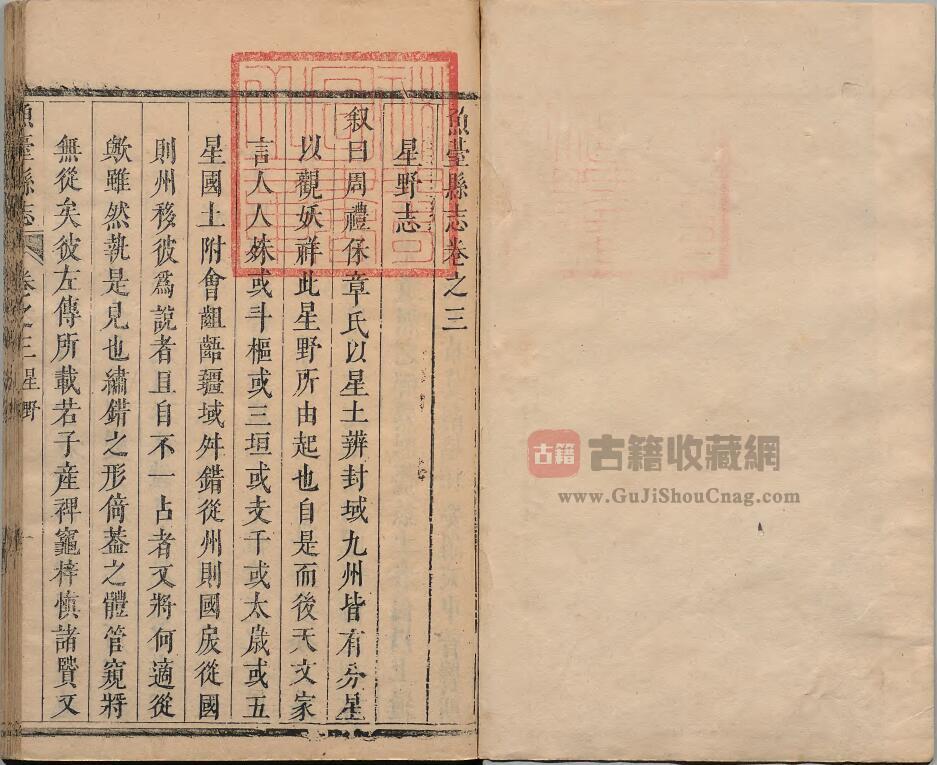 魚臺縣志卷之三
星野志
叙曰周禮保章氏以星土辨封域九州皆有分星
以觀妖祥此星野所由起也自是而後天文家
言人人殊或斗樞或三垣或支干或太歲或五
星國土附會齟齬疆域舛錯從州則國戾從國
則州移彼爲說者且自不一占者又將何適從
歟雖然執是見也繡錯之形倚蓋之體管窺將
無從矣彼左傳所載若子産裨竈梓慎諸賢又
魚臺縣志 卷之三 星野 一
古籍 古籍收藏網
www.GuJiShouCnag.com